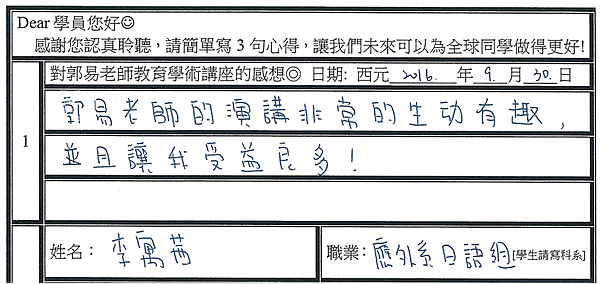 Dear 學員您好☺
感謝您認真聆聽，請簡單寫 3 句心得，讓我們未來可以為全球同學做得更好!
對郭易老師教育學術講座的感想◎ 日期: 西元 2016. 年 9. 月 30. 日
1
郭易老師的演講非常的生动有趣，
並且讓我受益良多！
姓名： 李寓
職業： 應外系日語組[學生請寫科系]